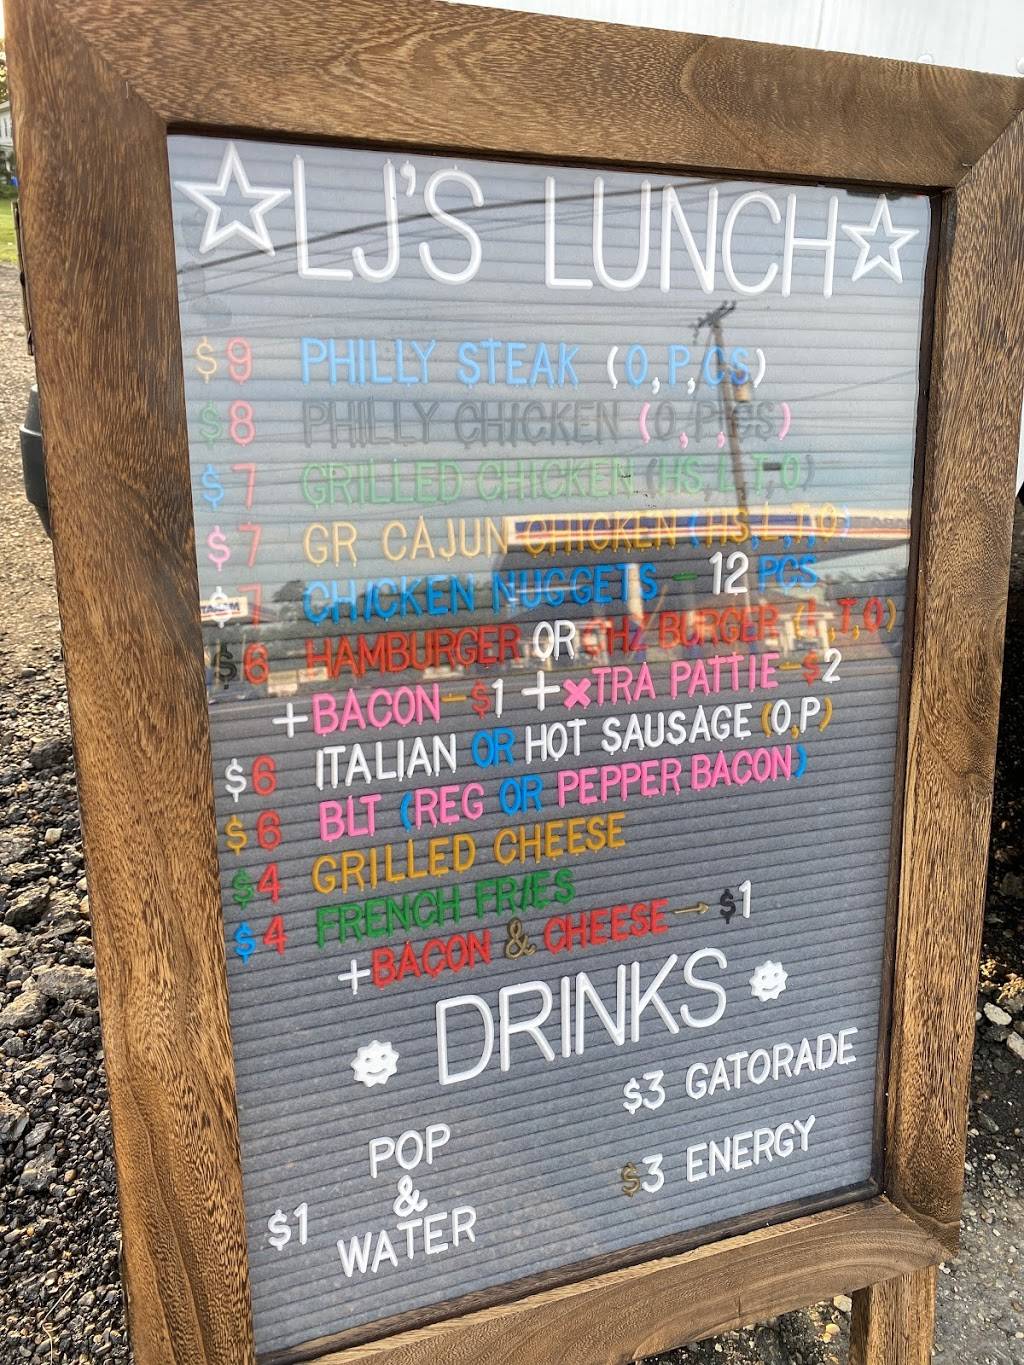 LJ'S LUNCH
$9 PHILLY STEAK (O,P,CS)
$8 PHILLY CHICKEN (O,P,CS)
$7 GRILLED CHICKEN (HS,L,T,O)
$7 GR CAJUN CHICKEN (HS,L,T,O)
$7 CHICKEN NUGGETS - 12 PCS
$6 HAMBURGER OR CHZ BURGER (L,T,O)
+BACON-$1 +XTRA PATTIE-$2
$6 ITALIAN OR HOT SAUSAGE (O,P)
$6 BLT (REG OR PEPPER BACON)
$4 GRILLED CHEESE
$4 FRENCH FRIES
+BACON & CHEESE→$1
DRINKS
$3 GATORADE
$3 ENERGY
POP
&
$1 WATER